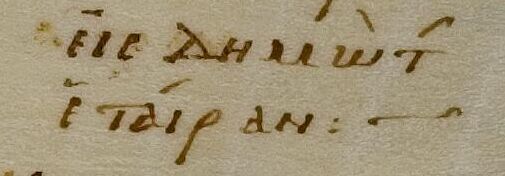 εἰς Δημὼ τ̀
ἑταίραν :—